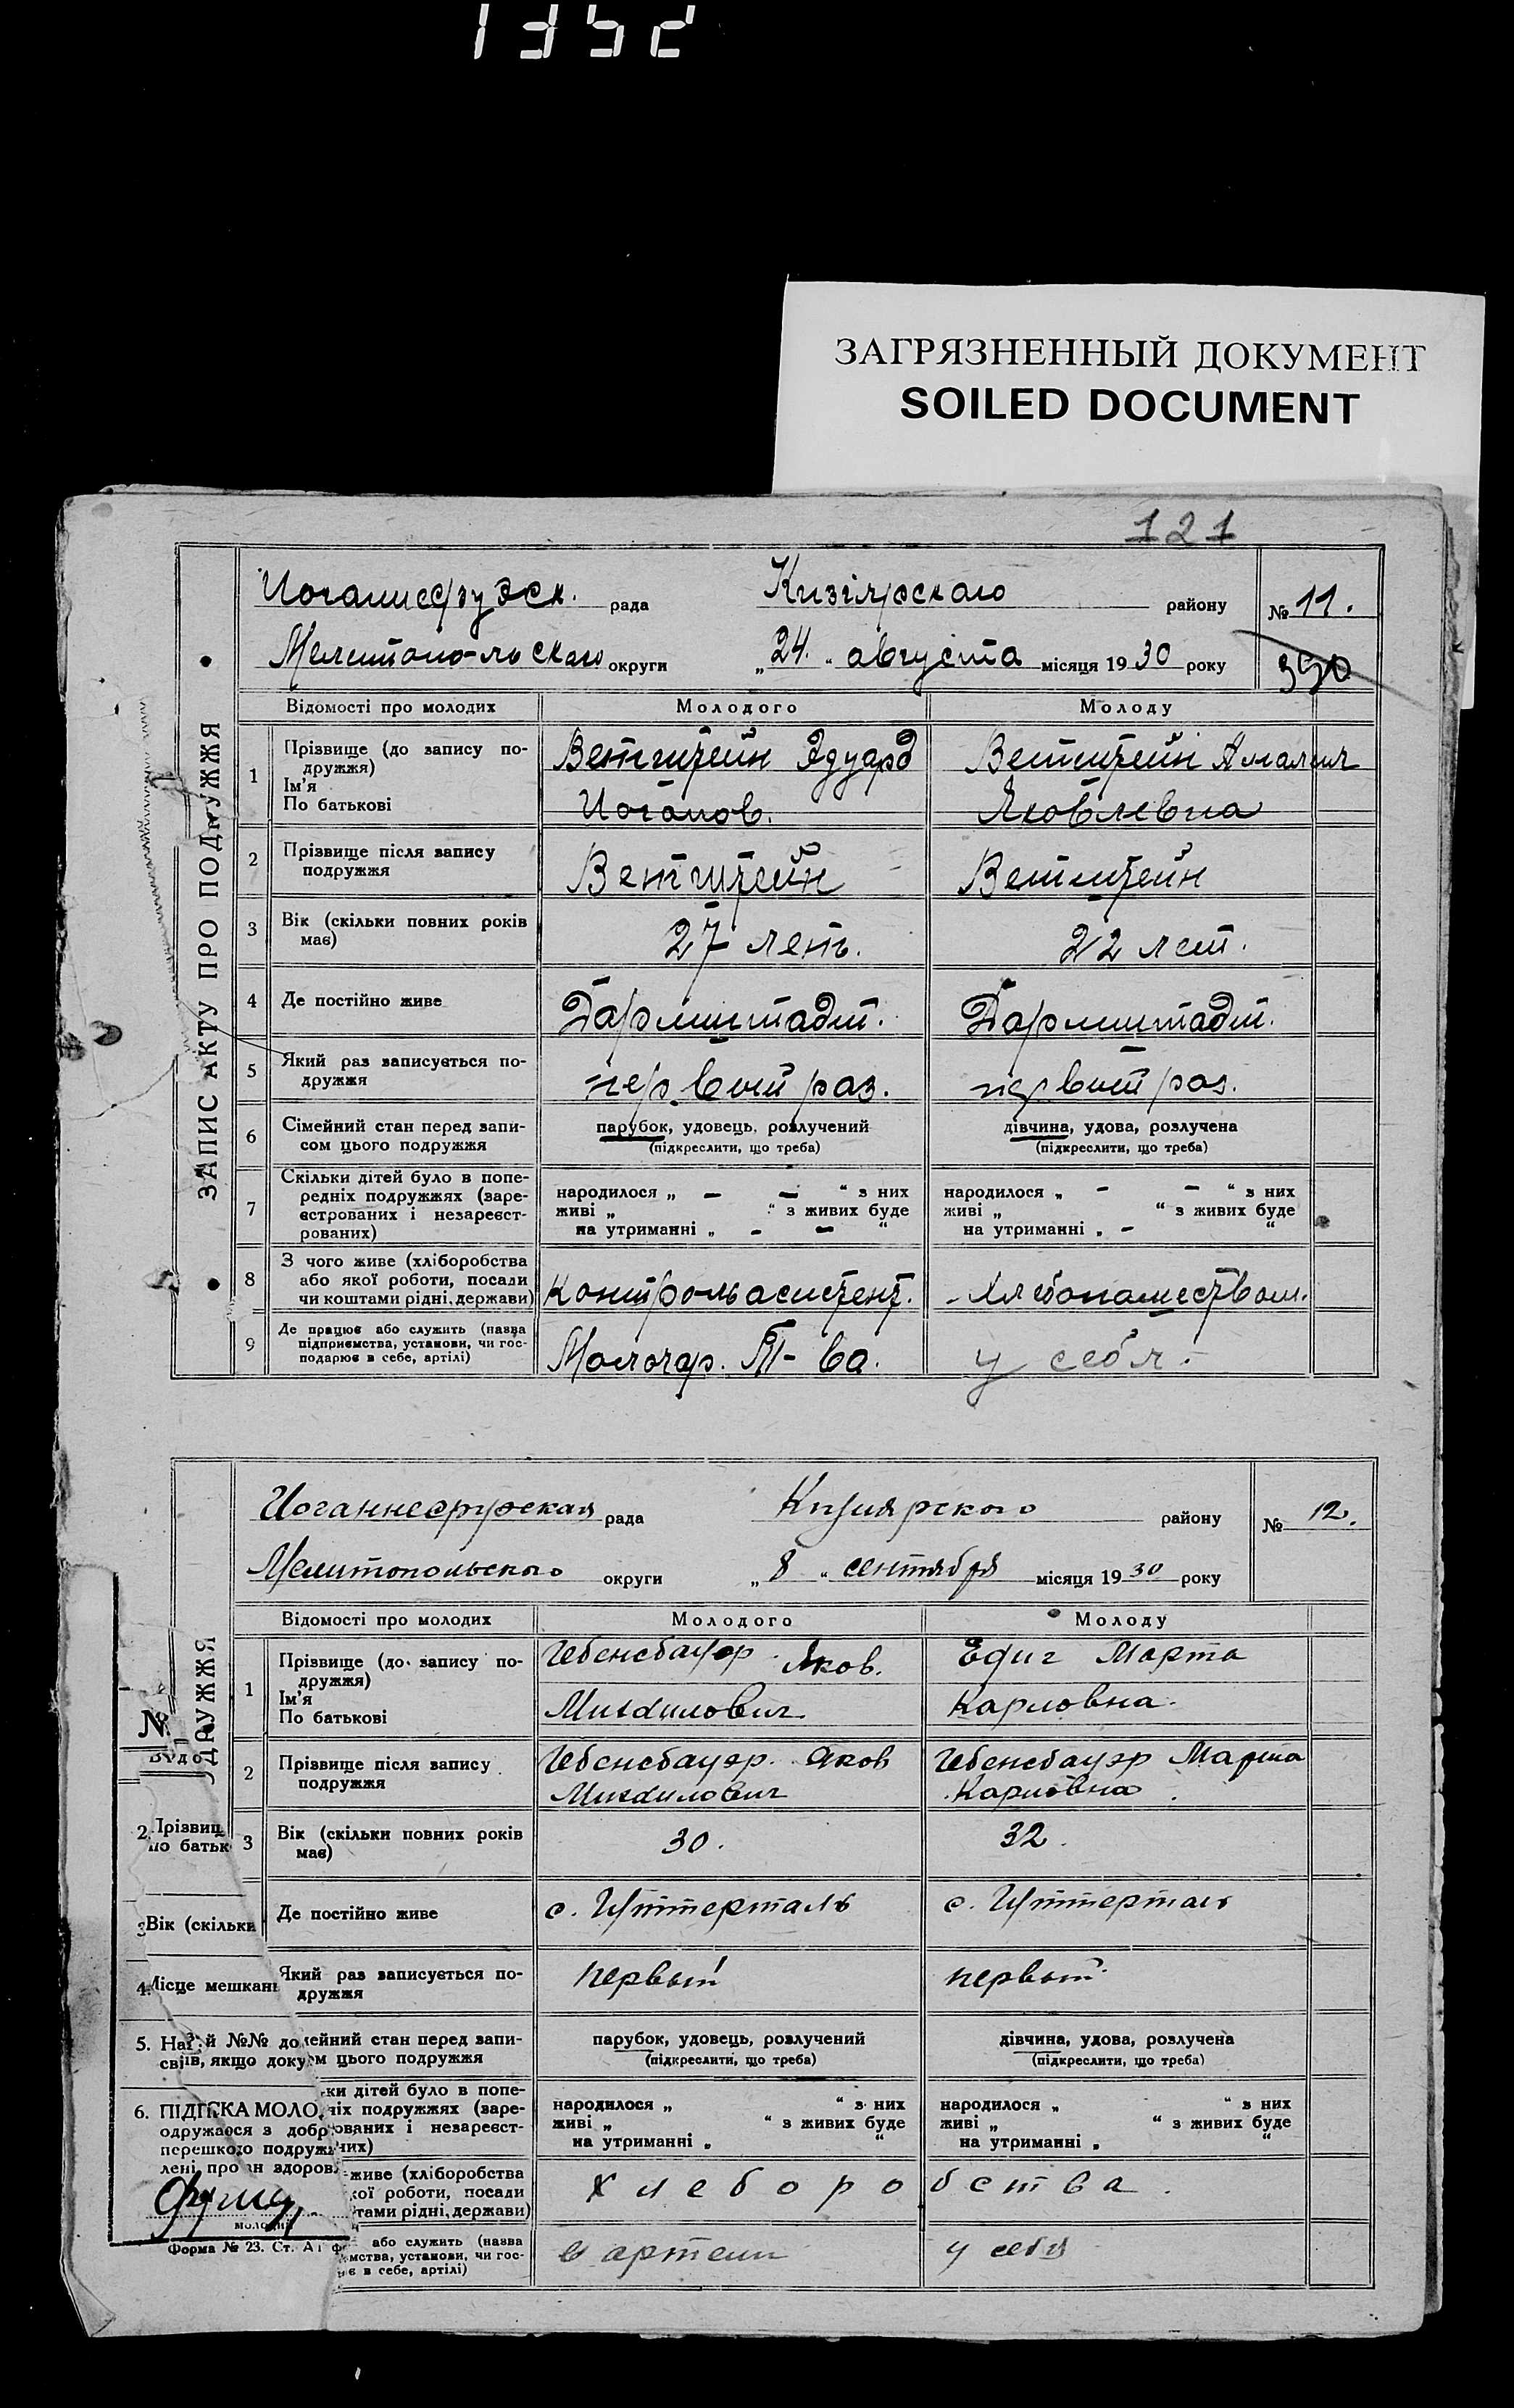 1352
ЗАГРЯЗНЕННЫЙ ДОКУМЕНТ
SOILED DOCUMENT
121
ЗАПИС АКТУ ПРО ПОДРУЖЖЯ
Иоганнесрузск. рада Кизіярского району № 11.
Мелитопольского округи „24.“ августа місяця 1930 року 390
Відомості про молодих Молодого Молоду
1 Прізвище (до запису по-
дружжя)
Ім'я
По батькові
Ветштейн Эдуард
Иоганов.
Ветштейн Амалия
Яковлевна
2 Прізвище після запису
подружжя
Ветштейн Ветштейн
3 Вік (скільки повних років
має)
27 леть. 22 лет.
4 Де постійно живе Дармштадт. Дармштадт.
5 Який раз записується по-
дружжя
первый раз. первый раз.
6 Сімейний стан перед запи-
сом цього подружжя
парубок, удовець, розлучений
(підкреслити, що треба)
дівчина, удова, розлучена
(підкреслити, що треба)
7 Скільки дітей було в попе-
редніх подружжях (заре-
єстрованих і незареєст-
рованих)
народилося „ – – “ з них
живі „ “ з живих буде
на утриманні „ – – “
народилося „ – – “ з них
живі „ “ з живих буде
на утриманні „ – “
8 З чого живе (хліборобства
або якої роботи, посади
чи коштами рідні, держави)
Контрольасистент. Хлебопашеством.
9 Де працює або служить (назва
підприємства, установи, чи гос-
подарює в себе, артілі)
Молочар. Т-ва. у себя.
ДРУЖЖЯ
Иоганнесрузская рада Кизиярского району № 12.
Мелитопольского округи „8“ сентября місяця 1930 року
Відомості про молодих Молодого Молоду
1 Прізвище (до запису по-
дружжя)
Ім'я
По батькові
Яков.
Михайлович
Едиг Марта
Карловна.
2 Прізвище після запису
подружжя
Яков
Михайлович
Марта
Карловна
3 Вік (скільки повних років
має)
30. 32.
Де постійно живе с. Гуттерталь с. Гуттерталь
Який раз записується по-
дружжя
первый первый
ейний стан перед запи-
м цього подружжя
парубок, удовець, розлучений
(підкреслити, що треба)
дівчина, удова, розлучена
(підкреслити, що треба)
ки дітей було в попе-
ніх подружжях (заре-
ованих і незареєст-
них)
народилося „ “ з них
живі „ “ з живих буде
на утриманні „ “
народилося „ “ з них
живі „ “ з живих буде
на утриманні „ “
живе (хліборобства
кої роботи, посади
тами рідні, держави)
хлеборобства.
або служить (назва
мства, установи, чи гос-
є в себе, артілі)
в артели у себя
№
2. Прізвищ
по батьк
3 Вік (скільки
4. Місце мешкан
5. На й №№ до
свів, якщо доку
6. ПІДПИСКА МОЛО
одружаєся з добр
перешкодо подруж
лені про ан здоров
молодий
Форма № 23. Ст. А